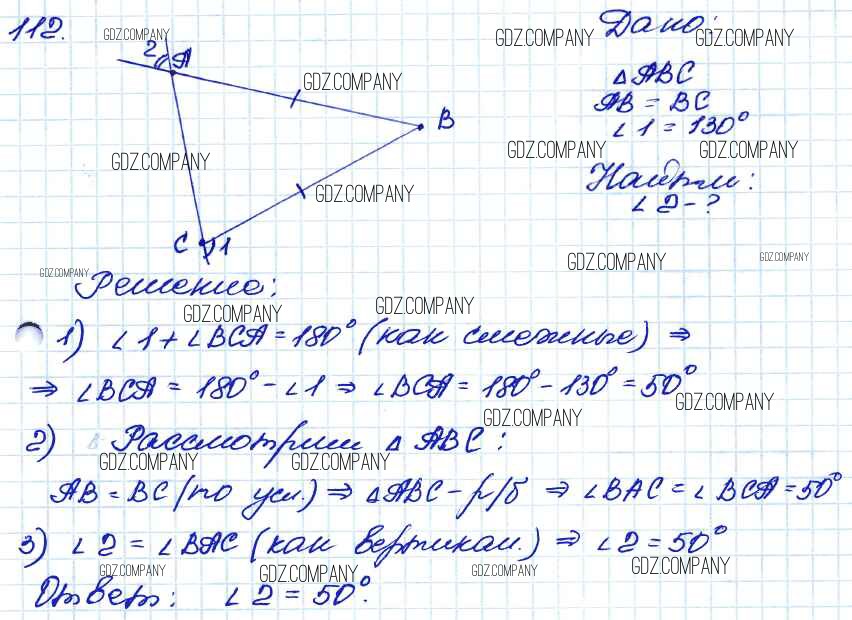 112.
GDZ.COMPANY
GDZ.COMPANY
GDZ.COMPANY
Дано:
2 A
GDZ.COMPANY
△ABC
AB = BC
∠1 = 130°
B
GDZ.COMPANY
GDZ.COMPANY
GDZ.COMPANY
GDZ.COMPANY
Найти:
∠2 - ?
C 1
GDZ.COMPANY
GDZ.COMPANY
GDZ.COMPANY
Решение:
GDZ.COMPANY
GDZ.COMPANY
1) ∠1 + ∠BCA = 180° (как смежные) ⇒
⇒ ∠BCA = 180° - ∠1 ⇒ ∠BCA = 180° - 130° = 50°
GDZ.COMPANY
GDZ.COMPANY
2) Рассмотрим △ABC:
GDZ.COMPANY
GDZ.COMPANY
AB = BC (по усл.) ⇒ △ABC - р/б ⇒ ∠BAC = ∠BCA = 50°
3) ∠2 = ∠BAC (как вертикал.) ⇒ ∠2 = 50°
GDZ.COMPANY
GDZ.COMPANY
GDZ.COMPANY
GDZ.COMPANY
Ответ: ∠2 = 50°.